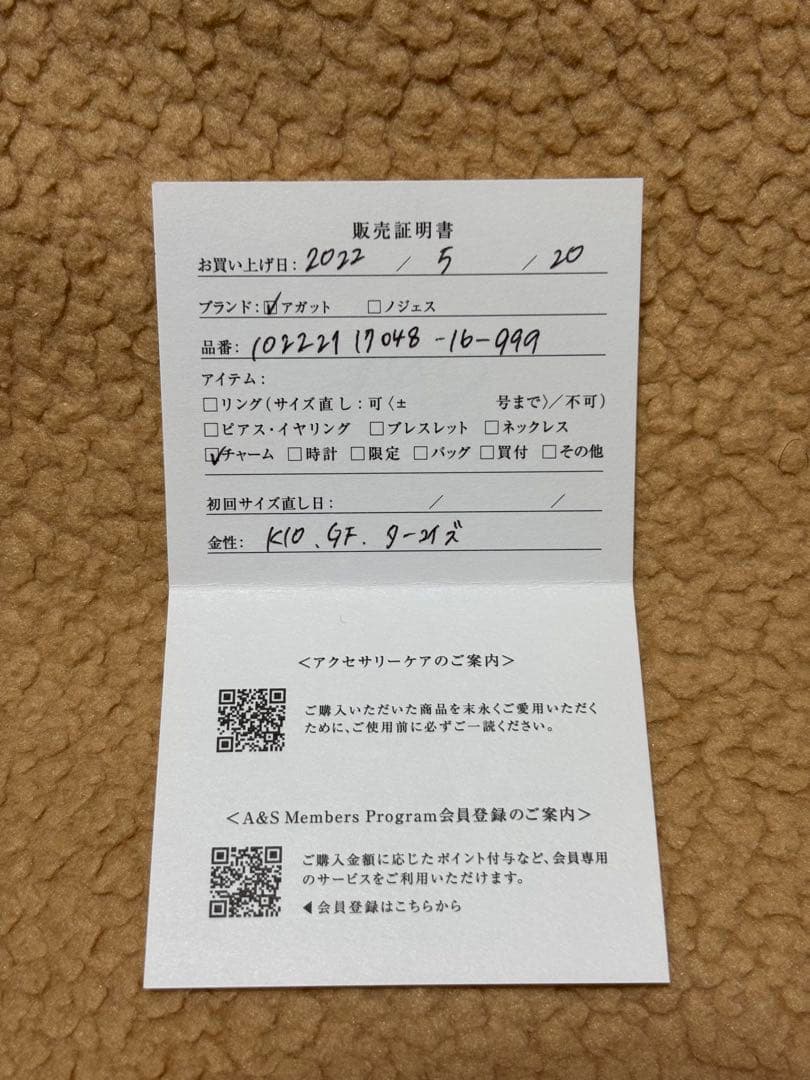 販売証明書
お買い上げ日: 2022 / 5 / 20
ブランド: ☑アガット □ノジェス
品番: 1022217048-16-999
アイテム:
□リング(サイズ直し:可〈± 号まで〉/不可)
□ピアス・イヤリング □ブレスレット □ネックレス
☑チャーム □時計 □限定 □バッグ □買付 □その他
初回サイズ直し日: / /
金性: K10、GF. ターコイズ
<アクセサリーケアのご案内>
ご購入いただいた商品を末永くご愛用いただく
ために、ご使用前に必ずご一読ください。
<A&S Members Program会員登録のご案内>
ご購入金額に応じたポイント付与など、会員専用
のサービスをご利用いただけます。
◀会員登録はこちらから